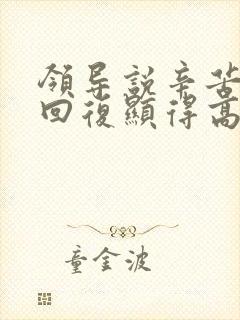 領导説辛苦
回復顯得高
童金波